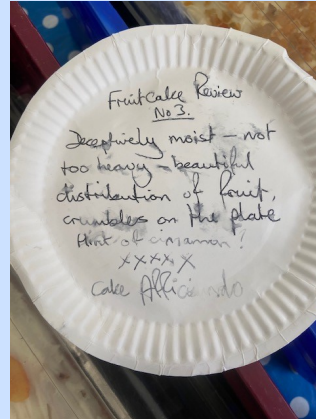 Fruitcake Review
No 3.
Deceptively moist – not
too heavy – beautiful
distribution of fruit,
crumbles on the plate
Hint of cinnamon!
xxxxx
Cake